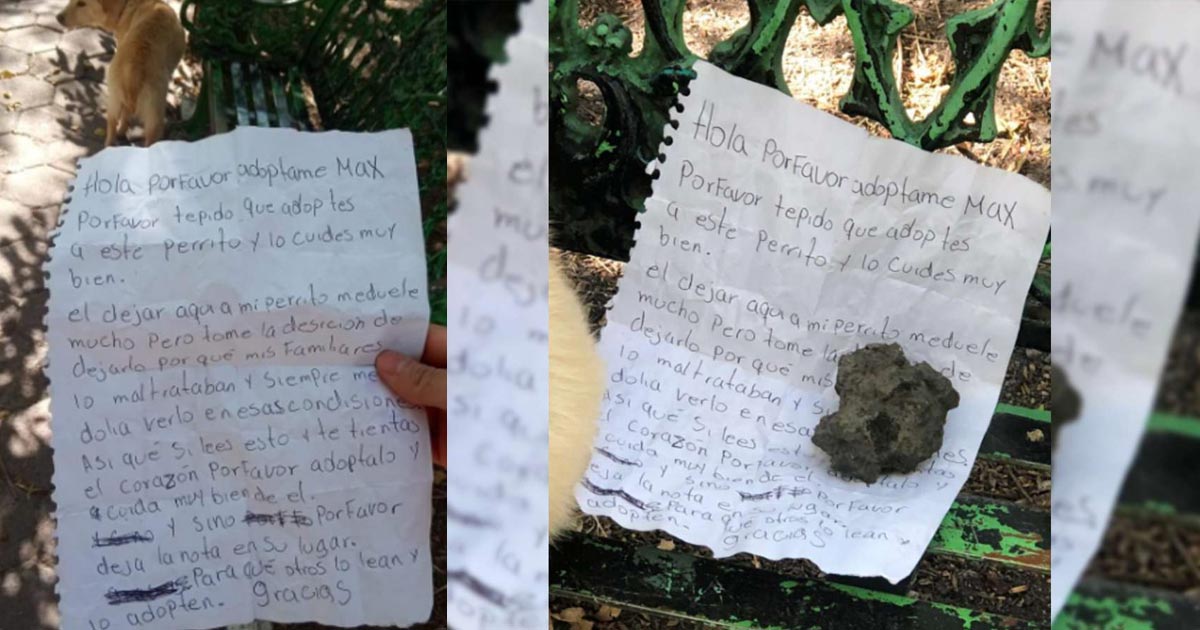 Hola PorFavor adoptame MAX
PorFavor tepido que adoptes
a este Perrito y lo cuides muy
bien.
el dejar aqui a mi perrito meduele
mucho Pero tome la desicion de
dejarlo por qué mis Familiares
lo maltrataban y siempre me
dolia verlo en esas condisiones
Asi qué Si lees esto y te tientas
el corazón PorFavor adoptalo y
cuida muy bien de el.
y sino PorFavor
deja la nota en su lugar.
Para qué otros lo lean y
lo adopten. gracias
Hola PorFavor adoptame MAX
PorFavor tepido que adoptes
a este Perrito y lo cuides muy
bien.
el dejar aqui a mi perrito meduele
mucho Pero tome la de
dejarlo por qué mis
lo maltrataban y
dolia verlo en esas
Asi qué Si lees
corazón Por adoptalo y
cuida muy bien de el
y sino PorFavor
deja la nota en su lugar.
Para qué otros lo lean y
adopten. gracias